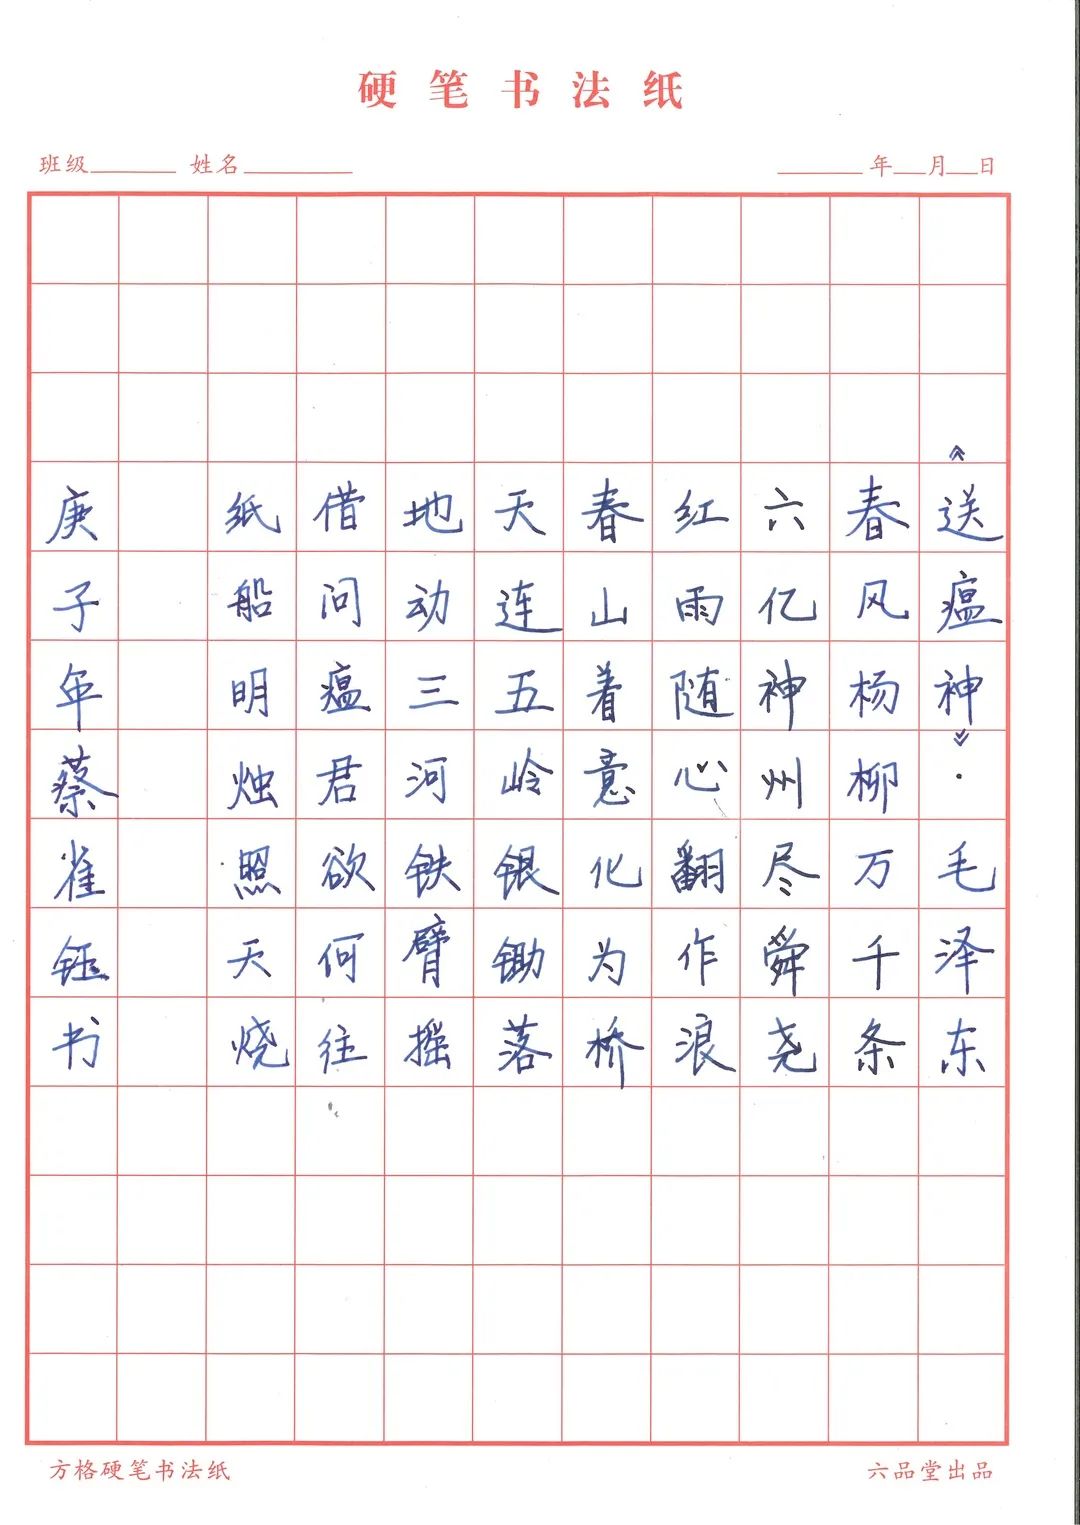 硬笔书法纸
班级 姓名 年 月 日
《送瘟神》·毛泽东
春风杨柳万千条
六亿神州尽舜尧
红雨随心翻作浪
春山着意化为桥
天连五岭银锄落
地动三河铁臂摇
借问瘟君欲何往
纸船明烛照天烧
庚子年蔡雀钰书
方格硬笔书法纸
六品堂出品